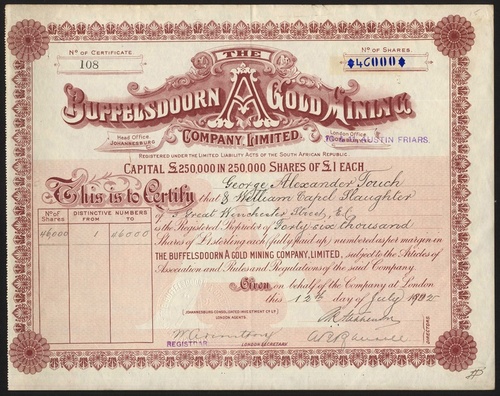 No OF CERTIFICATE
108
No OF SHARES
46000
THE
BUFFELSDOORN A GOLD MINING
COMPANY, LIMITED.
Head Office
JOHANNESBURG
London Office
AUSTIN FRIARS.
REGISTERED UNDER THE LIMITED LIABILITY ACTS OF THE SOUTH AFRICAN REPUBLIC
CAPITAL £250,000 IN 250,000 SHARES OF £1 EACH
This is to Certify
George Alexander Touch
that & William Capel Slaughter
of 5 Great Winchester Street, E.C
is the Registered Proprietor of Forty six thousand
Shares of £1 sterling each (fully paid up) numbered as per margin in
THE BUFFELSDOORN A GOLD MINING COMPANY, LIMITED, subject to the Articles of
Association and Rules and Regulations of the said Company.
No OF SHARES
DISTINCTIVE NUMBERS
FROM TO
46000 1 46000
Given on behalf of the Company at London
this 12th day of July 1895
JOHANNESBURG CONSOLIDATED INVESTMENT Co Ld
LONDON AGENTS.
REGISTRAR
LONDON SECRETARY
DIRECTORS